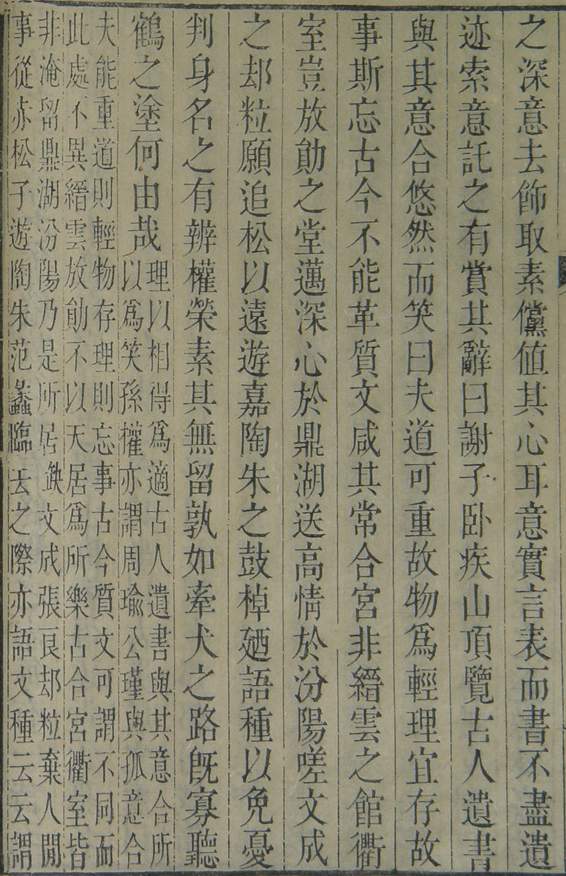 之深意去飾取素儻值其心耳意實言表而書不盡遺
迹索意託之有賞其辭曰謝子卧疾山頂覽古人遺書
與其意合悠然而笑曰夫道可重故物爲輕理宜存故
事斯忘古今不能革質文咸其常合宮非縉雲之館衢
室豈放勛之堂邁深心於鼎湖送高情於汾陽嗟文成
之却粒願追松以遠遊嘉陶朱之鼓棹廼語種以免憂
判身名之有辨權榮素其無留孰如牽犬之路旣寡聽
鶴之塗何由哉
理以相得爲適古人遺書與其意合所
以爲笑孫權亦謂周瑜公瑾與孤意合
夫能重道則輕物存理則忘事古今質文可謂不同而
此處不異縉雲放勛不以天居爲所樂古合宮衢室皆
非淹留鼎湖汾陽乃是所居 文成張良却粒棄人間
事從赤松子遊陶朱范蠡臨去之際亦語文種云云謂